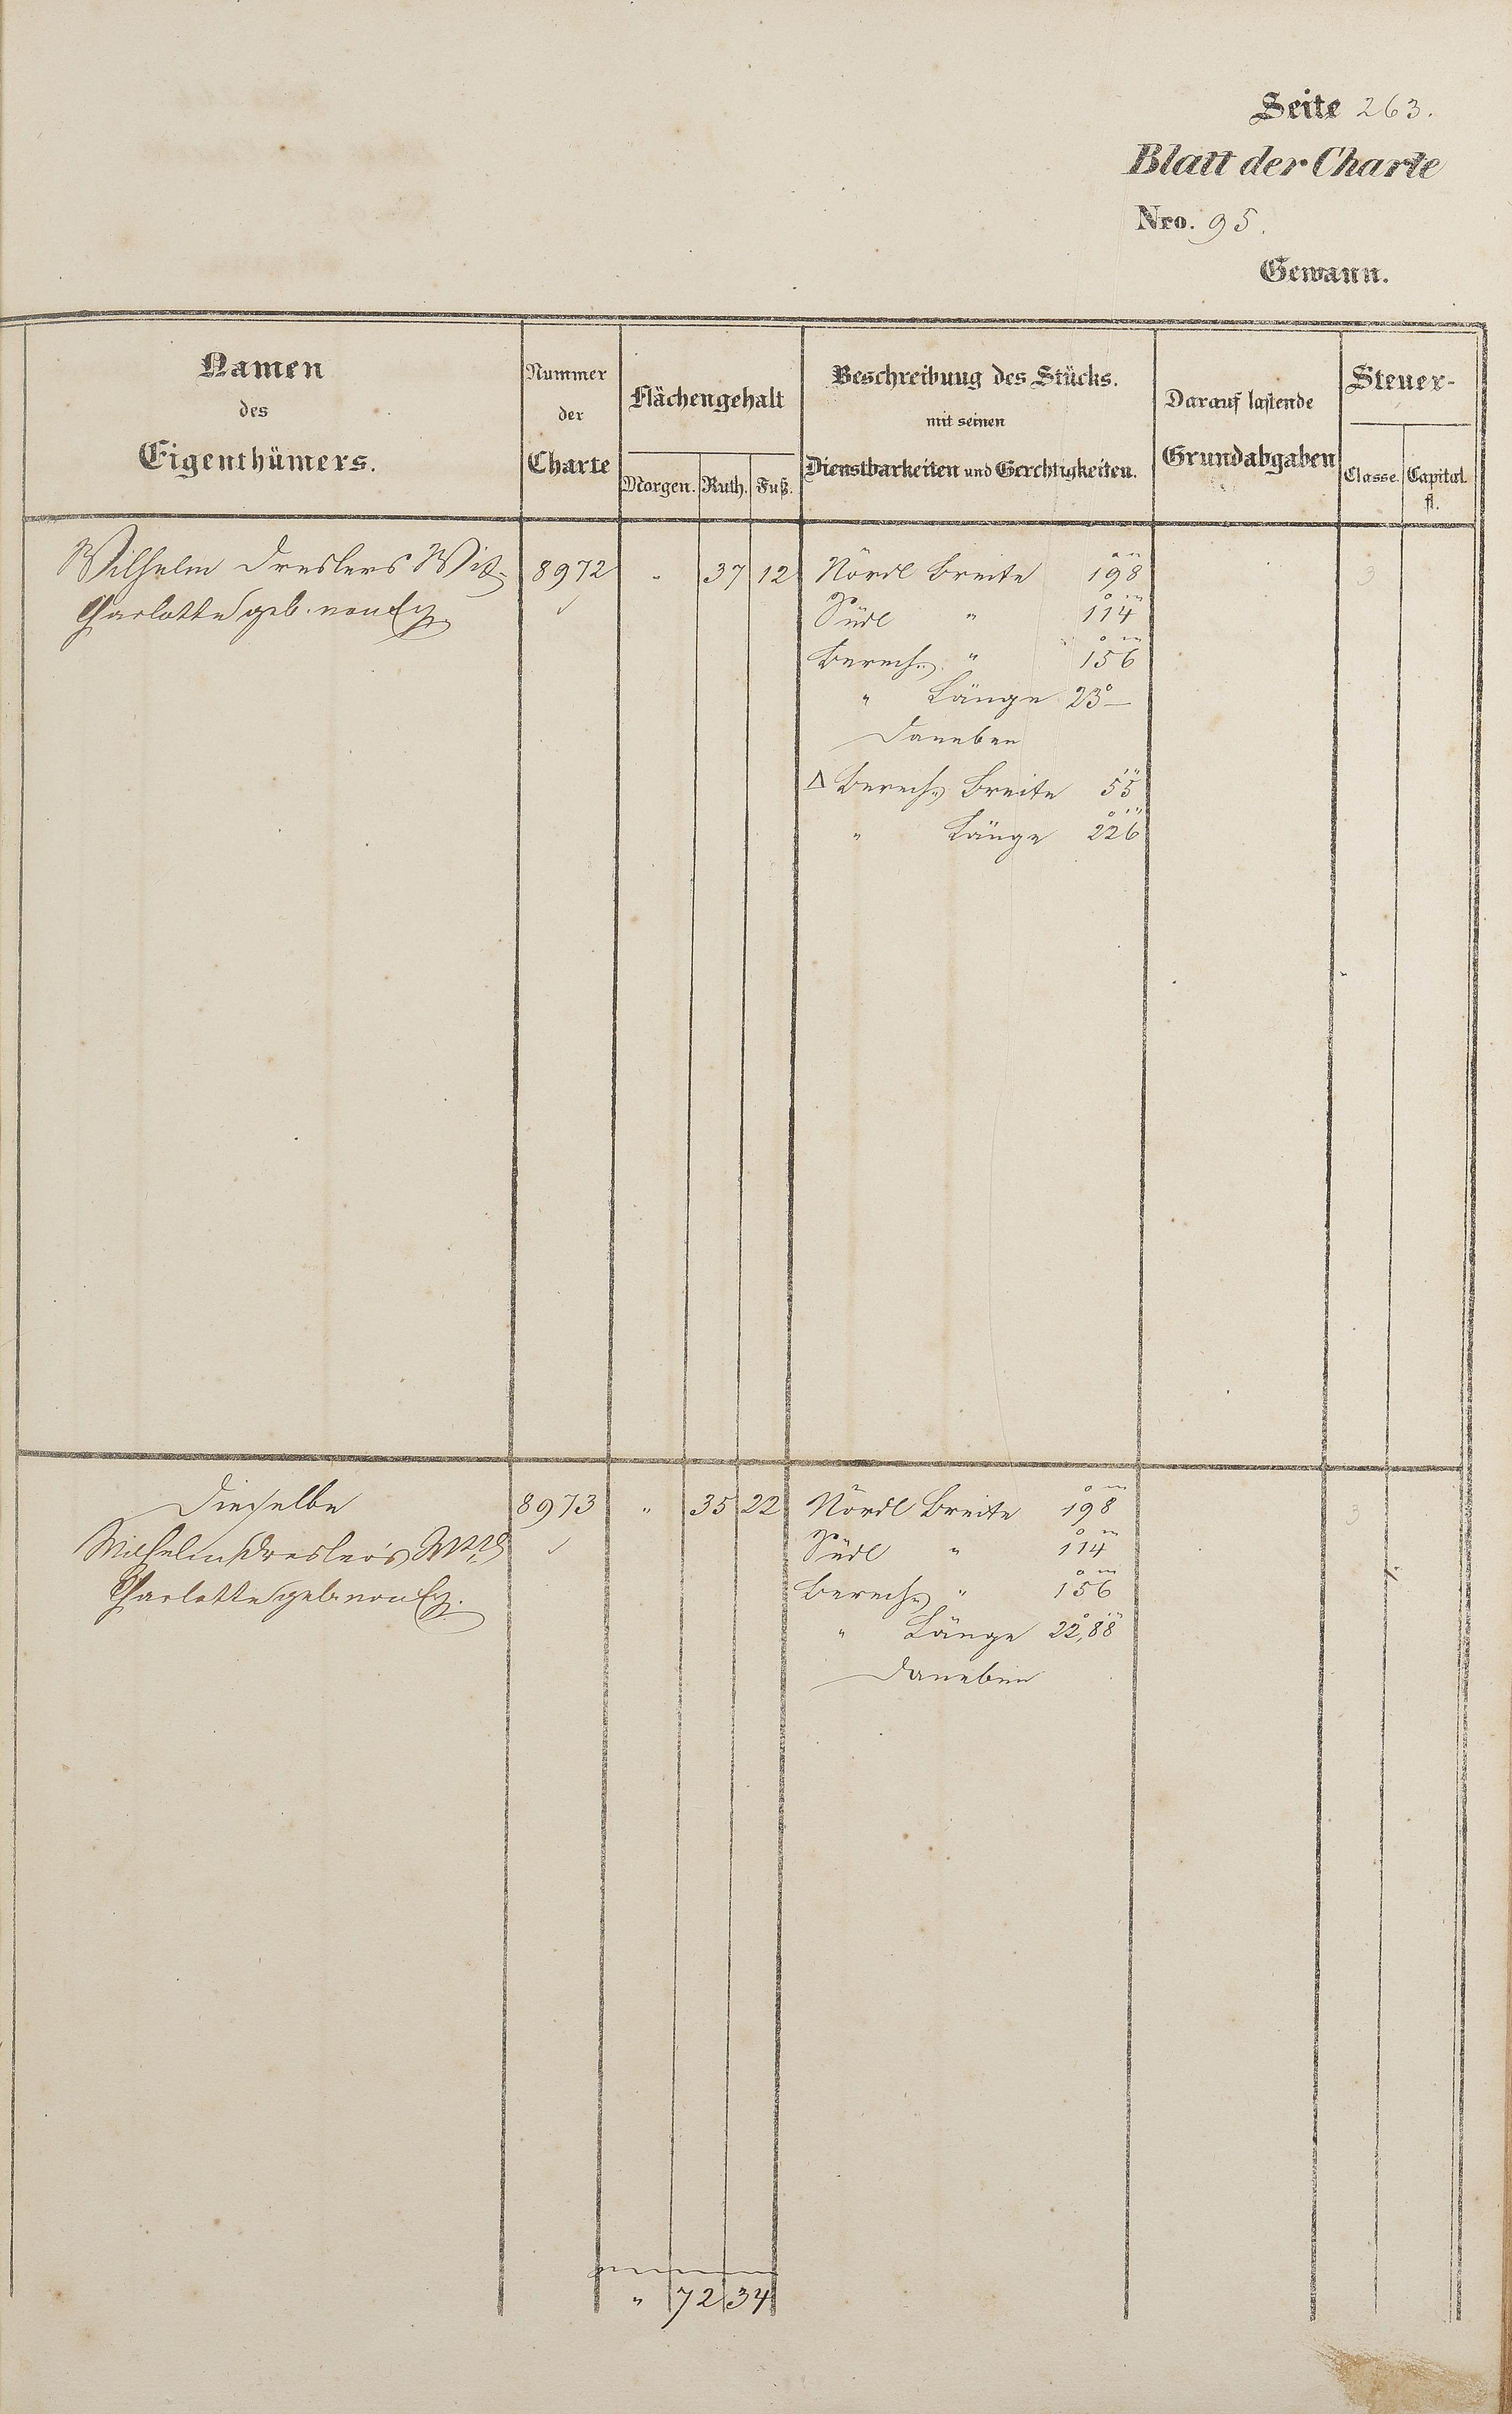 Seite 263.
Blatt der Charte
Nro. 95.
Gewann.
Namen
des
Eigenthümers.
Nummer
der
Charte
Flächengehalt
Morgen. Ruth. Fuß.
Beschreibung des Stücks.
mit seinen
Dienstbarkeiten und Gerechtigkeiten.
Darauf lastende
Grundabgaben
Steuer-
Classe. Capital.
fl.
Wilhelm Dreslers 8972 " 37 12 Nördl Breite 198 3
Charlotte geb. von Südl " 114
Berech. " 156
" Länge 23° —
Daneben
Δ Berech. Breite 55
" Länge 226
Dieselbe 8973 " 35 22 Nördl Breite 198 3
Wilhelm Dresler's Südl " 114
Charlotte geb. von Berech. " 156
" Länge 22°,88
Daneben
" 72 34